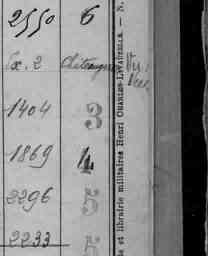 2550 6
Ex. 2
1404 3
1869 4
2296 5
2233 5
e et librairie militaires Henri CHARLES-LAVAUZELLE. — N.